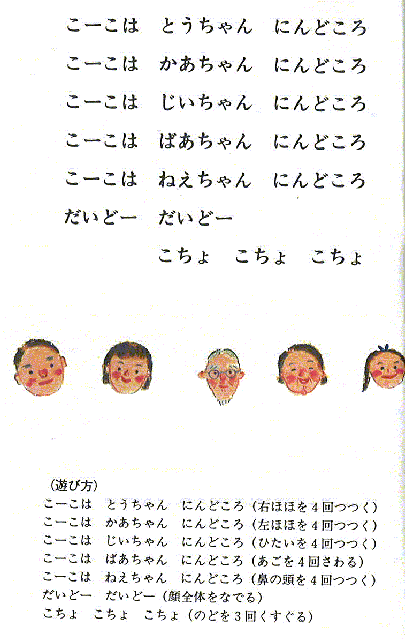 こーこは　とうちゃん　にんどころ
こーこは　かあちゃん　にんどころ
こーこは　じいちゃん　にんどころ
こーこは　ばあちゃん　にんどころ
こーこは　ねえちゃん　にんどころ
だいどー　だいどー
こちょ　こちょ　こちょ
（遊び方）
こーこは　とうちゃん　にんどころ（右ほほを４回つつく）
こーこは　かあちゃん　にんどころ（左ほほを４回つつく）
こーこは　じいちゃん　にんどころ（ひたいを４回つつく）
こーこは　ばあちゃん　にんどころ（あごを４回さわる）
こーこは　ねえちゃん　にんどころ（鼻の頭を４回つつく）
だいどー　だいどー（顔全体をなでる）
こちょ　こちょ　こちょ（のどを３回くすぐる）